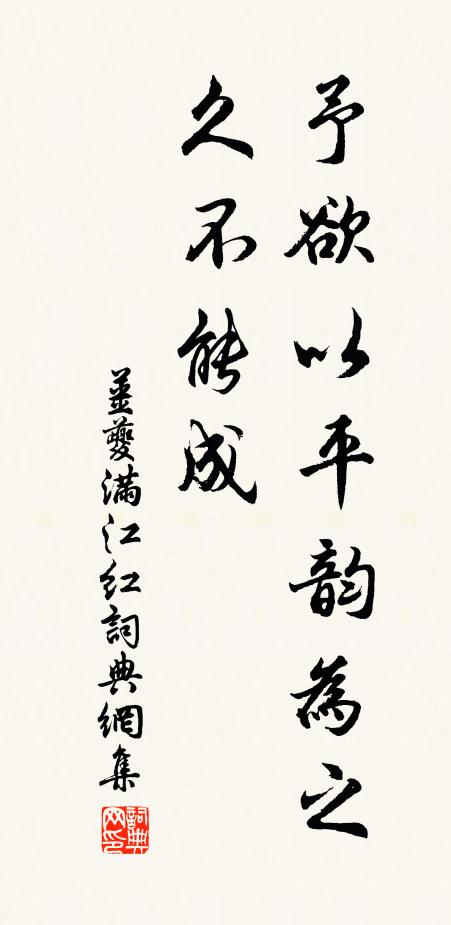 予欲以平韵為之
久不能成
姜夔满江红詞典網集
詞典网印